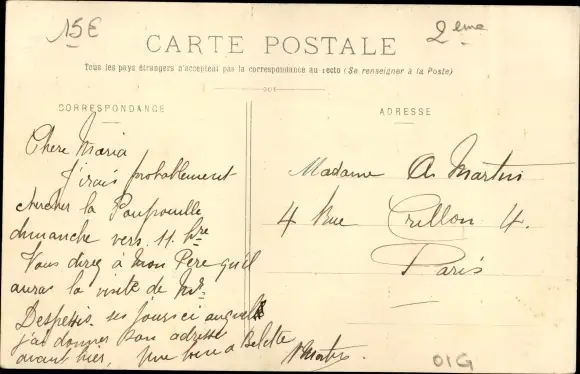 15€
2ème
CARTE POSTALE
Tous les pays étrangers n'acceptent pas la correspondance au recto (Se renseigner à la Poste)
CORRESPONDANCE
Chere Maria
J'irais probablement
chercher la
dimanche vers 11 hre
Vous direz à mon Père qu'il
auras la visite de Mr
ses jours ci auquel
j'ai donner son adresse
avant hier, a Belotte
AMartin.
ADRESSE
Madame A. Martin
4 Rue Crillon 4.
Paris
01G